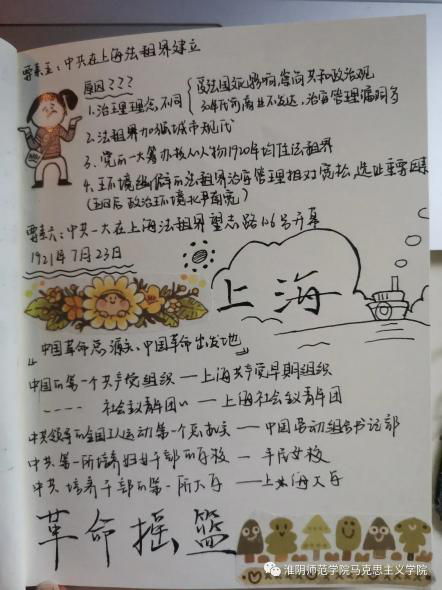 要素五：中共在上海法租界建立
原因？？？
1.治理理念不同
受法国文化影响，崇尚共和政治观
治安管理漏洞多
2.法租界加强城市现代
3.党的一大筹办核心人物1920年均住法租界
4.互环境幽僻的法租界治安管理相对宽松，选址重要因素
政治环境
要素六：中共一大在上海法租界望志路106号开幕
1921年7月23日
上海
“中国革命总源头、中国革命出发地”
中国的第一个共产党组织——上海共产党早期组织
---- 社会主义青年团 〃 —上海社会主义青年团
中共领导的全国工人运动第一个总机关——中国劳动组合书记部
中共第一所培养妇女干部的学校—平民女校
中共培养干部的第一所大学——上海大学
革命摇篮
淮阴师范学院马克思主义学院